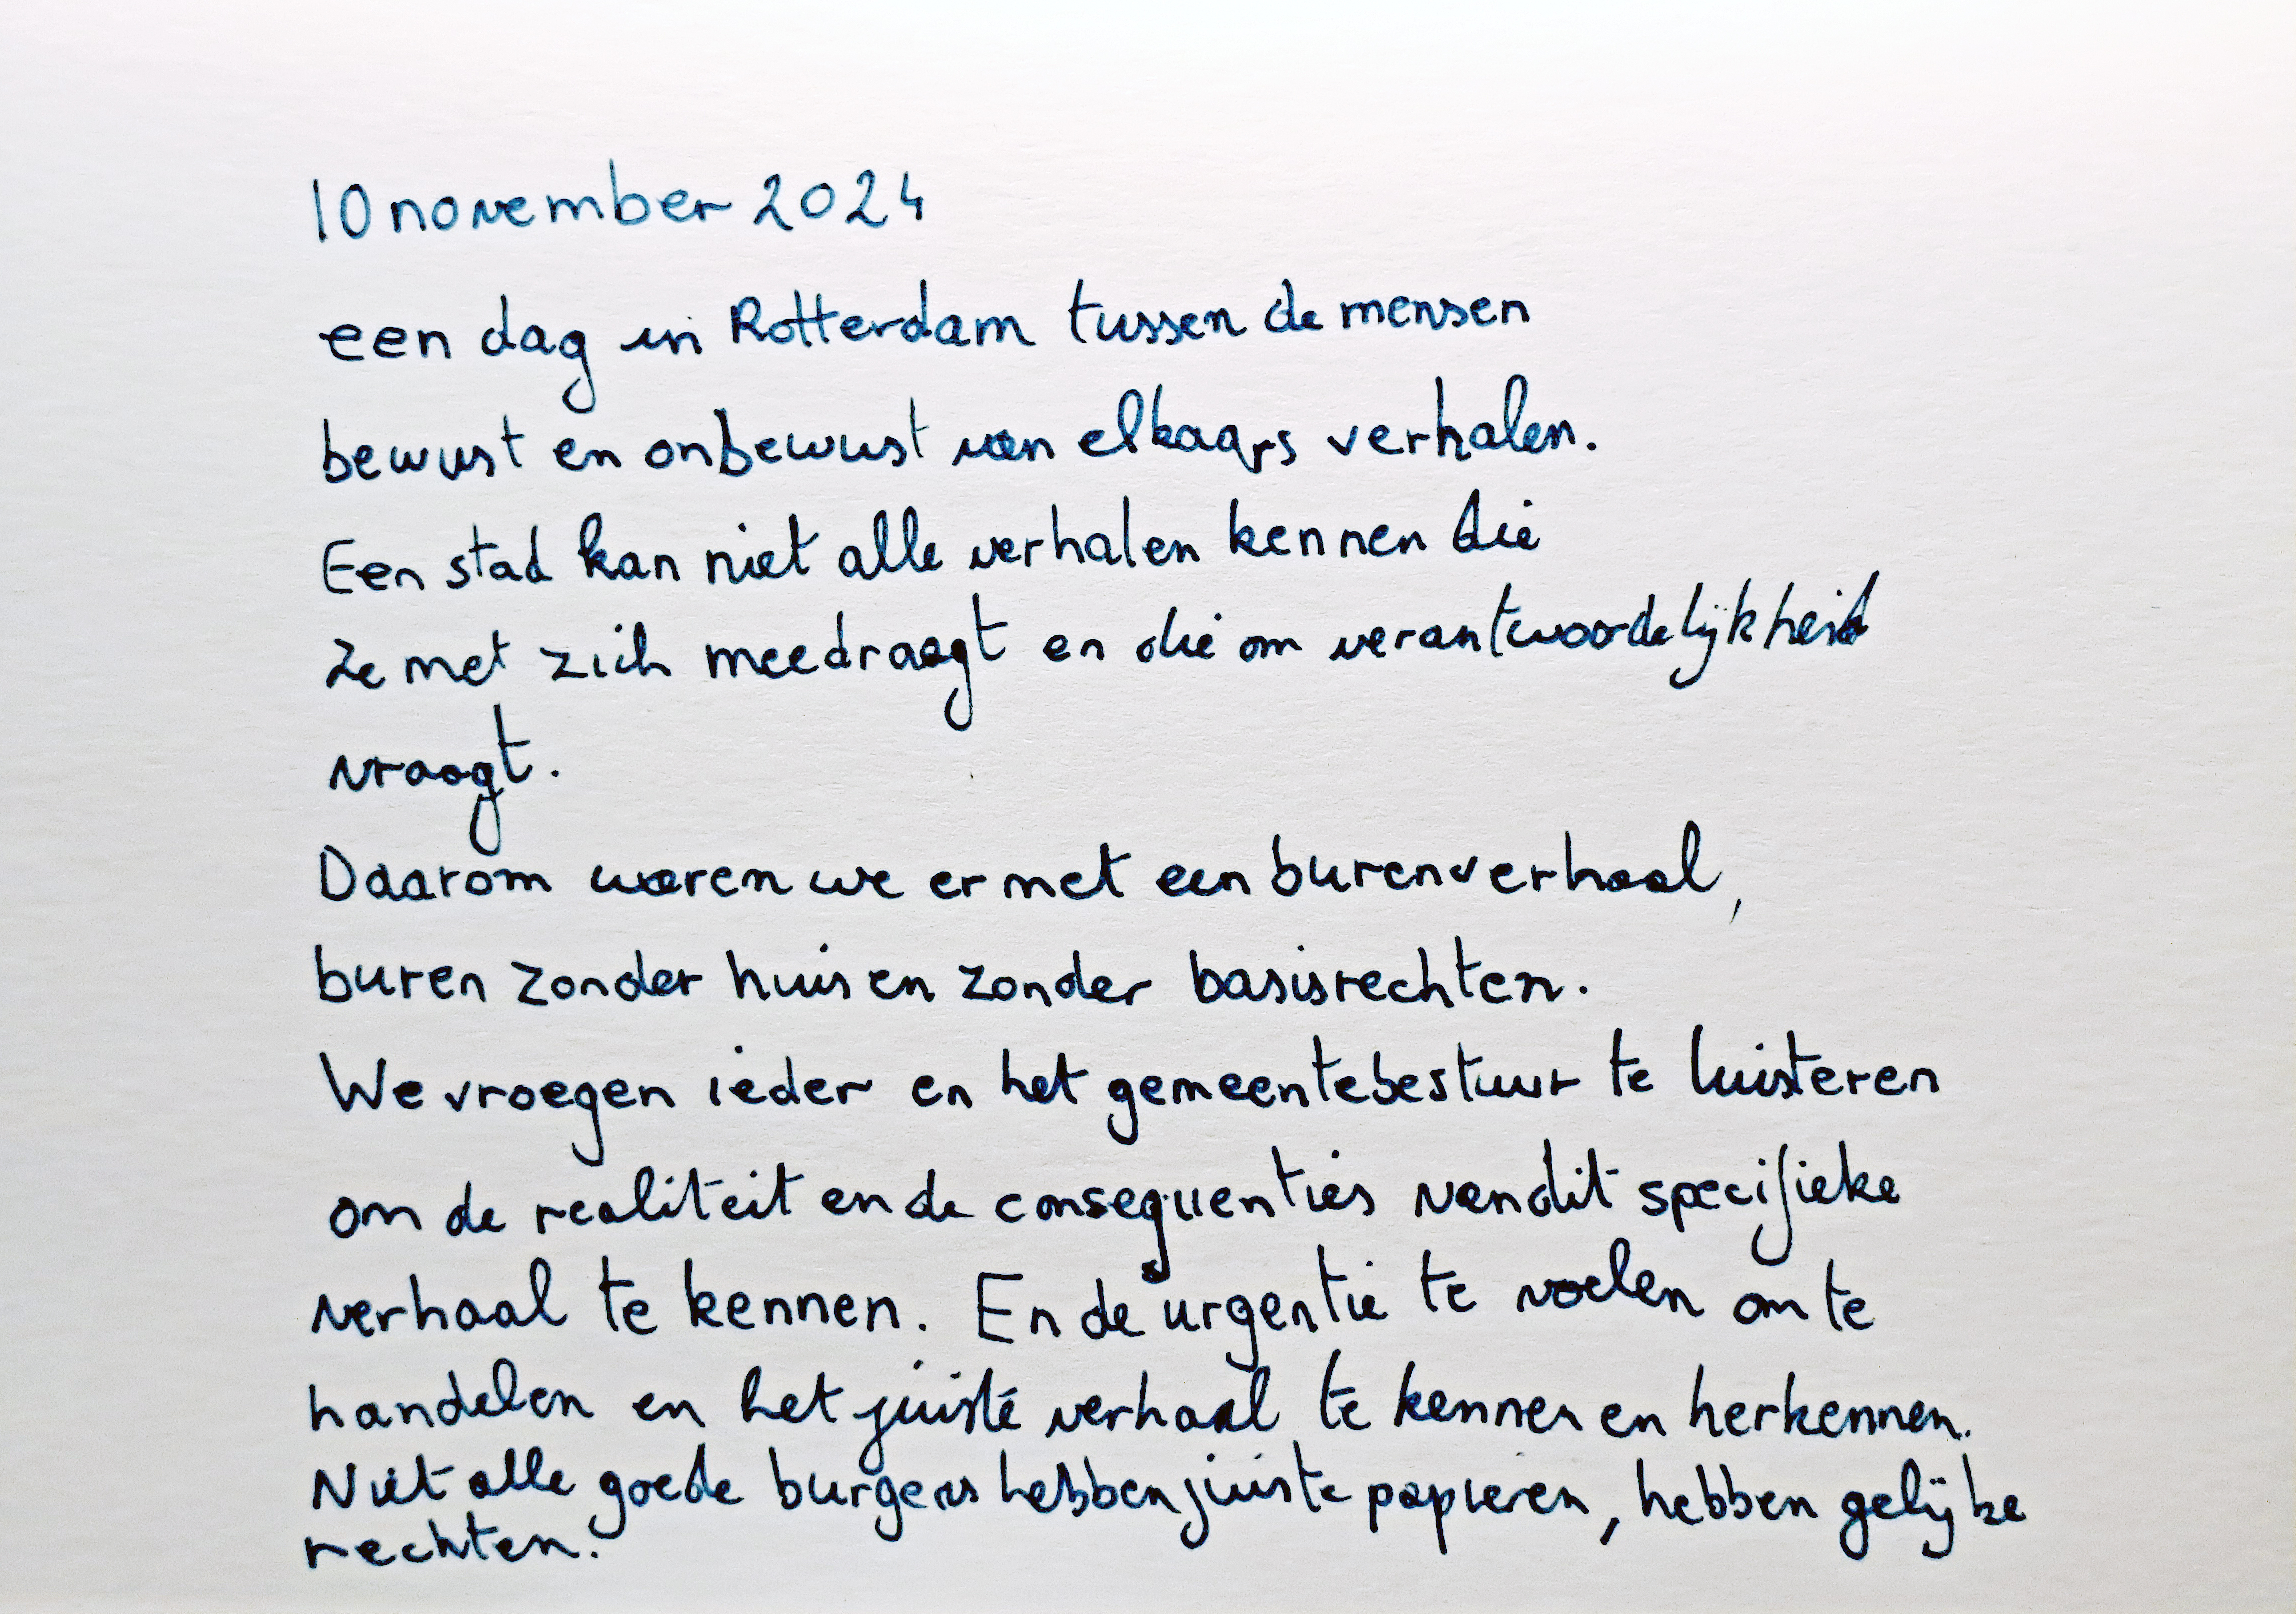 10 november 2024
een dag in Rotterdam tussen de mensen
bewust en onbewust van elkaars verhalen.
Een stad kan niet alle verhalen kennen die
ze met zich meedraagt en die om verantwoordelijkheid
vraagt.
Daarom waren we er met een burenverhaal,
buren zonder huis en zonder basisrechten.
We vroegen ieder en het gemeentebestuur te luisteren
om de realiteit en de consequenties van dit specifieke
verhaal te kennen. En de urgentie te voelen om te
handelen en het juiste verhaal te kennen en herkennen.
Niet alle goede burgers hebben juiste papieren, hebben gelijke
rechten.